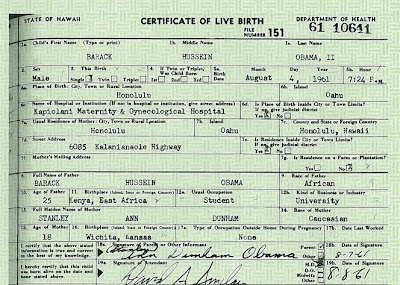 STATE OF HAWAII CERTIFICATE OF LIVE BIRTH DEPARTMENT OF HEALTH
FILE NUMBER 151 61 10641
1a. Child's First Name (Type or print) 1b. Middle Name 1c. Last Name
BARACK HUSSEIN OBAMA, II
2. Sex 3. This Birth 4. If Twin or Triplet, Was Child Born 5a. Birth Date Month Day Year 5b. Hour
Male Single Twin Triplet 1st 2nd 3rd August 4, 1961 7:24 P.M.
6a. Place of Birth: City, Town or Rural Location 6b. Island
Honolulu Oahu
6c. Name of Hospital or Institution (If not in hospital or institution, give street address) 6d. Is Place of Birth Inside City or Town Limits?
Kapiolani Maternity & Gynecological Hospital Yes No
7a. Usual Residence of Mother: City, Town or Rural Location 7b. Island 7c. County and State or Foreign Country
Honolulu Oahu Honolulu, Hawaii
7d. Street Address 7e. Is Residence Inside City or Town Limits?
6085 Kalanianaole Highway Yes No
7f. Mother's Mailing Address 7g. Is Residence on a Farm or Plantation?
Yes No
8. Full Name of Father 9. Race of Father
BARACK HUSSEIN OBAMA African
10. Age of Father 11. Birthplace (Island, State or Foreign Country) 12a. Usual Occupation 12b. Kind of Business or Industry
25 Kenya, East Africa Student University
13. Full Maiden Name of Mother 14. Race of Mother
STANLEY ANN DUNHAM Caucasian
15. Age of Mother 16. Birthplace (Island, State or Foreign Country) 17a. Type of Occupation Outside Home During Pregnancy 17b. Date Last Worked
18 Wichita, Kansas None
I certify that the above stated information is true and correct to the best of my knowledge. 18a. Signature of Parent or Other Informant Parent Other 18b. Date of Signature
Dunham Obama 8-7-61
I hereby certify that this child was born alive on the date and hour stated above. 19a. Signature of Attendant M.D. D.O. Midwife Other 19b. Date of Signature
David A Sinclair 8-8-61